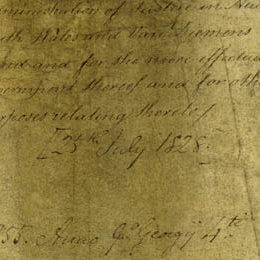 ministration of Justice in New
th Wales and Van Diemens
and and for the more effectual
overnment thereof and for oth
urposes relating thereto/
[25th July 1828.
55. Anno 9o Georgij 4ti